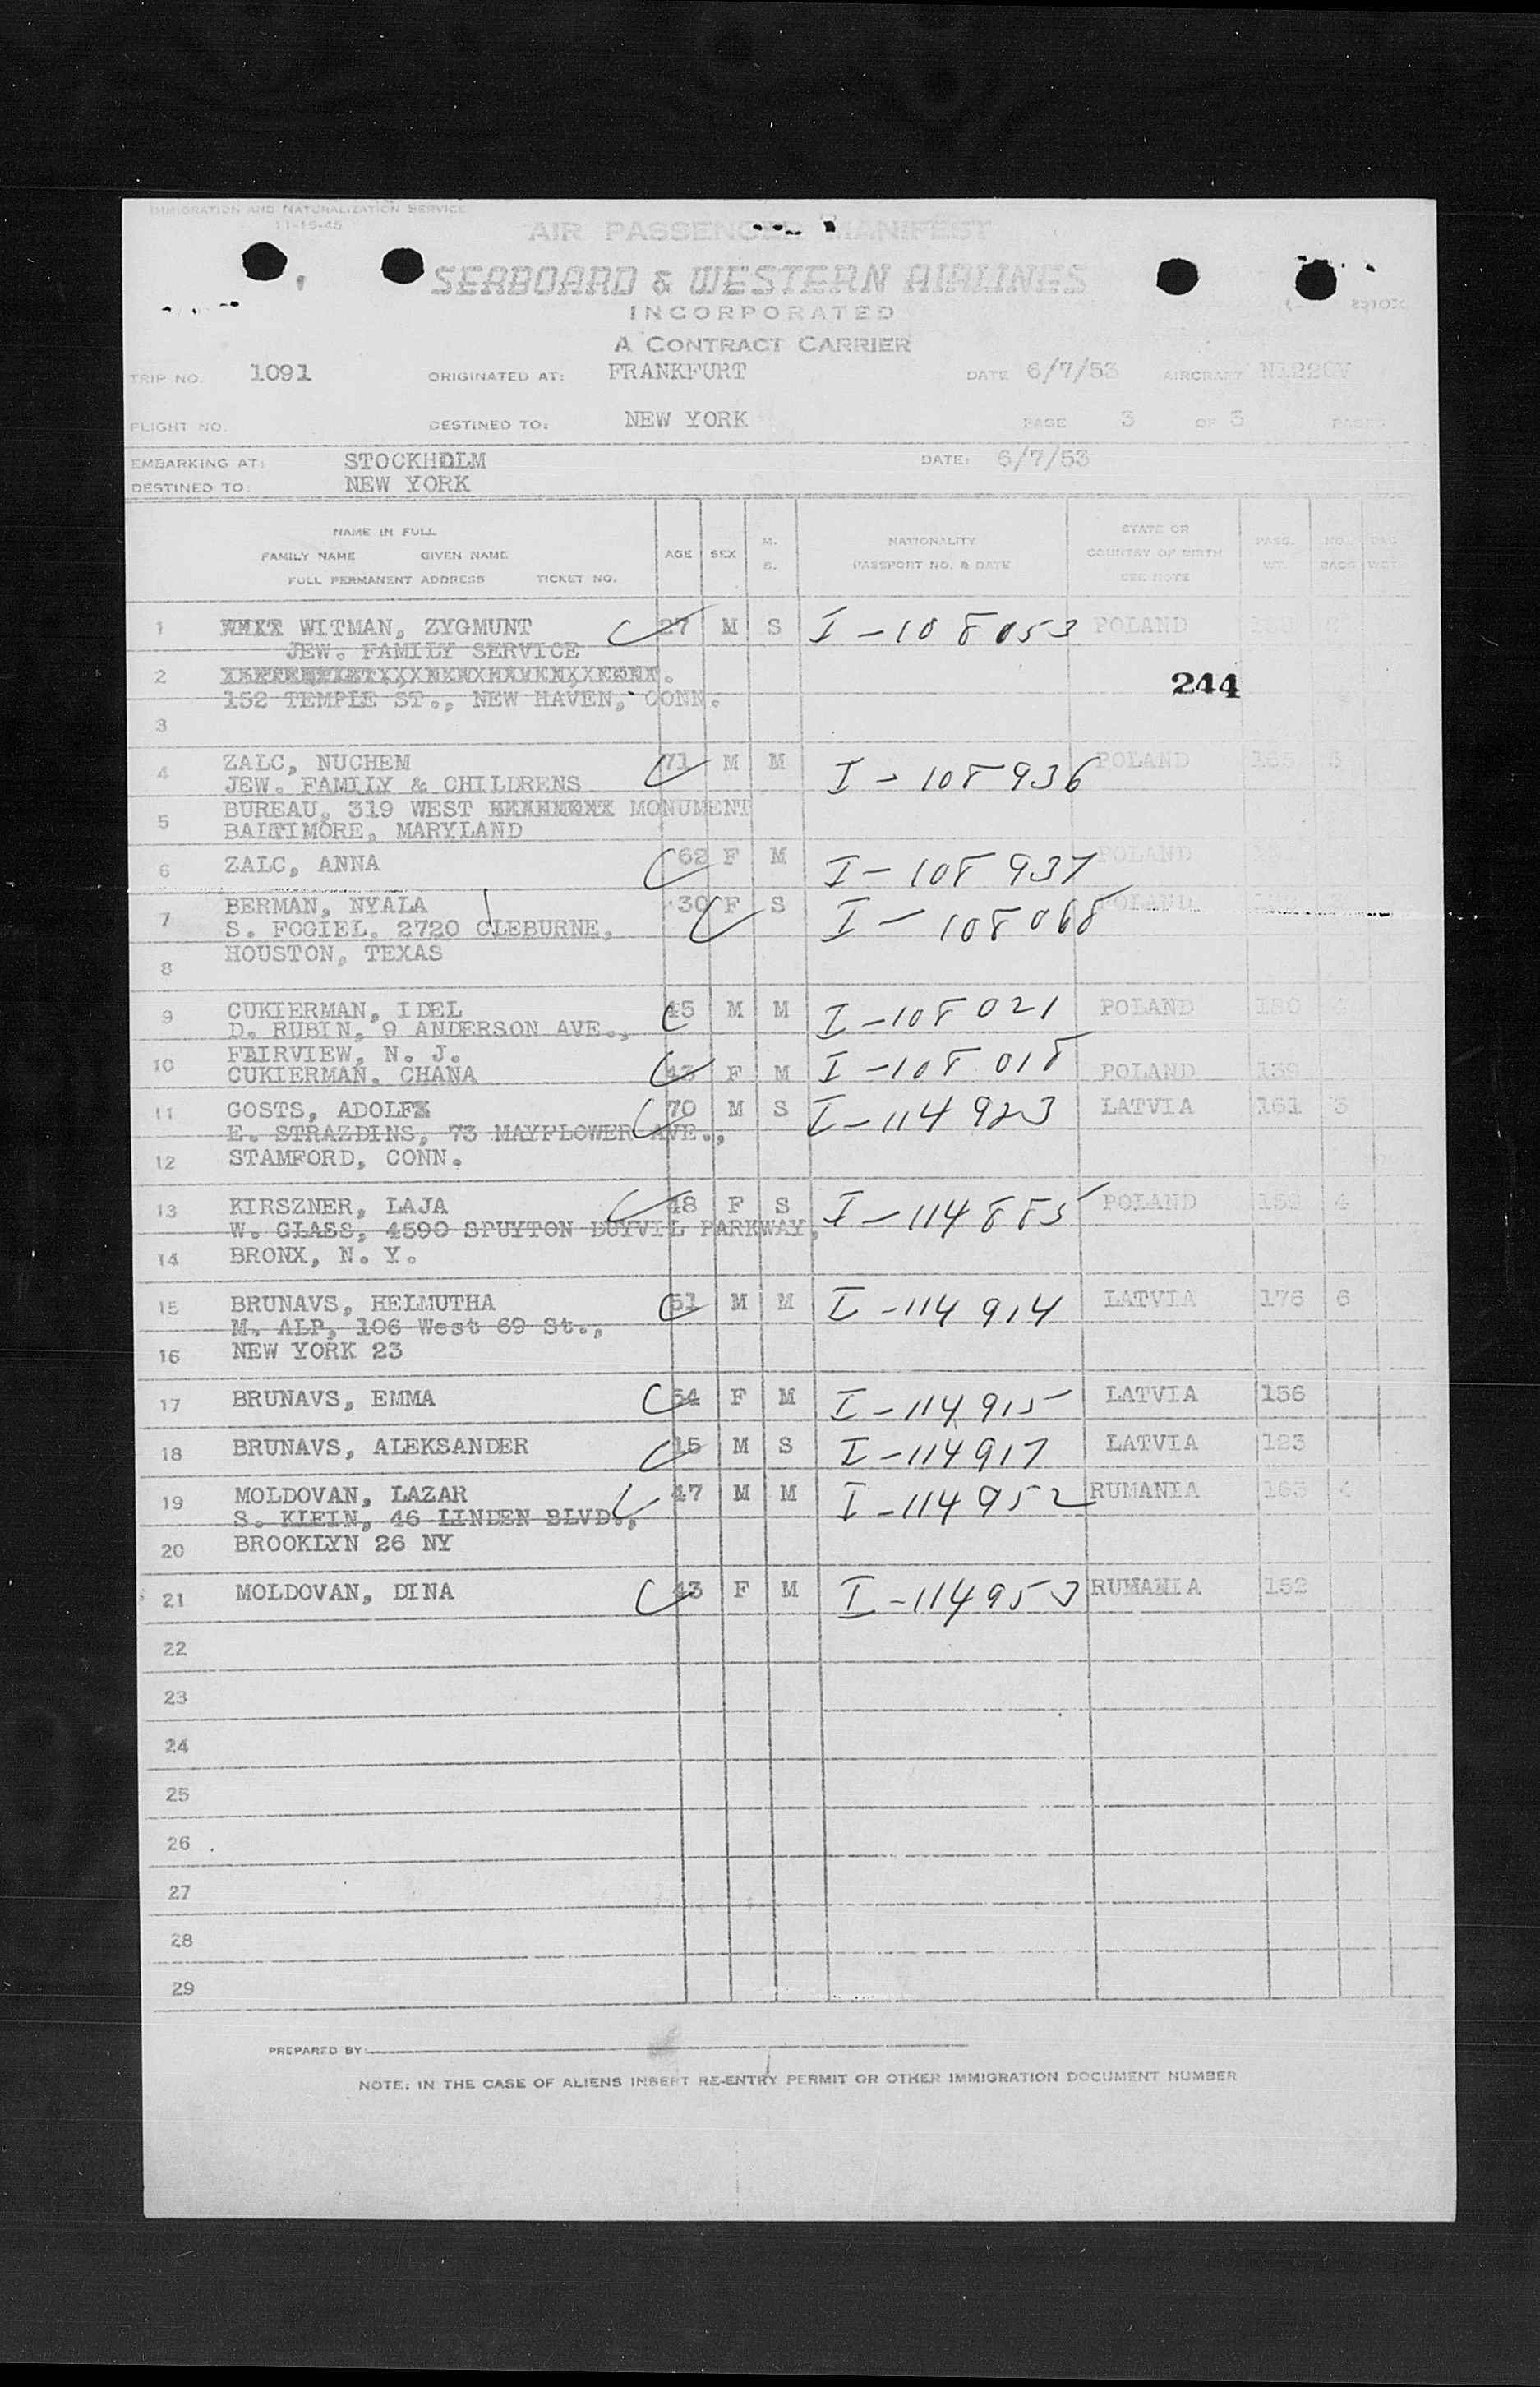 IMMIGRATION AND NATURALIZATION SERVICE
11-15-45
AIR PASSENGER MANIFEST
SEABOARD & WESTERN AIRLINES
INCORPORATED
A CONTRACT CARRIER
TRIP NO. 1091 ORIGINATED AT: FRANKFURT DATE 6/7/53 AIRCRAFT N1220V
FLIGHT NO. DESTINED TO: NEW YORK PAGE 3 OF 3 PAGES
EMBARKING AT: STOCKHOLM DATE: 6/7/53
DESTINED TO: NEW YORK
NAME IN FULL
FAMILY NAME GIVEN NAME
FULL PERMANENT ADDRESS TICKET NO.
AGE SEX M. S. NATIONALITY PASSPORT NO. & DATE STATE OR COUNTRY OF BIRTH SEE NOTE PASS. WT. NO. BAGS BAG WGT.
1 WITMAN, ZYGMUNT 27 M S I-108053 POLAND
JEW. FAMILY SERVICE
2 244
152 TEMPLE ST., NEW HAVEN, CONN.
3
4 ZALC, NUCHEM 71 M M I-108936 POLAND 165 3
JEW. FAMILY & CHILDRENS
5 BUREAU, 319 WEST MONUMENT
BALTIMORE, MARYLAND
6 ZALC, ANNA 62 F M I-108937 POLAND
7 BERMAN, NYALA 30 F S I-108068 POLAND
S. FOGIEL, 2720 CLEBURNE,
8 HOUSTON, TEXAS
9 CUKIERMAN, IDEL 45 M M I-108021 POLAND 180
D. RUBIN, 9 ANDERSON AVE.,
10 FAIRVIEW, N. J.
CUKIERMAN, CHANA 43 F M I-108018 POLAND 139
11 GOSTS, ADOLF 70 M S I-114923 LATVIA 161 3
E. STRAZDINS, 73 MAYFLOWER AVE.,
12 STAMFORD, CONN.
13 KIRSZNER, LAJA 48 F S I-114885 POLAND 159 4
W. GLASS, 4590 SPUYTON DUYVIL PARKWAY,
14 BRONX, N. Y.
15 BRUNAVS, HELMUTHA 51 M M I-114914 LATVIA 176 6
M. ALP, 106 West 69 St.,
16 NEW YORK 23
17 BRUNAVS, EMMA 54 F M I-114915 LATVIA 156
18 BRUNAVS, ALEKSANDER 15 M S I-114917 LATVIA 123
19 MOLDOVAN, LAZAR 47 M M I-114952 RUMANIA 163 4
S. KLEIN, 46 LINDEN BLVD.,
20 BROOKLYN 26 NY
21 MOLDOVAN, DINA 43 F M I-114953 RUMANIA 152
22
23
24
25
26
27
28
29
PREPARED BY:
NOTE: IN THE CASE OF ALIENS INSERT RE-ENTRY PERMIT OR OTHER IMMIGRATION DOCUMENT NUMBER